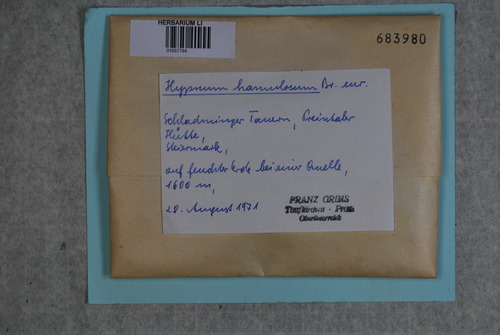 HERBARIUM LI
683980
Hypnum hamulosum Br. eur.
Schladminger Tauern, Preintaler
Hütte,
Steiermark,
auf feuchter Erde bei einer Quelle,
1600 m,
28. August 1971
FRANZ GRIMS
Taufkirchen - Pram
Oberösterreich